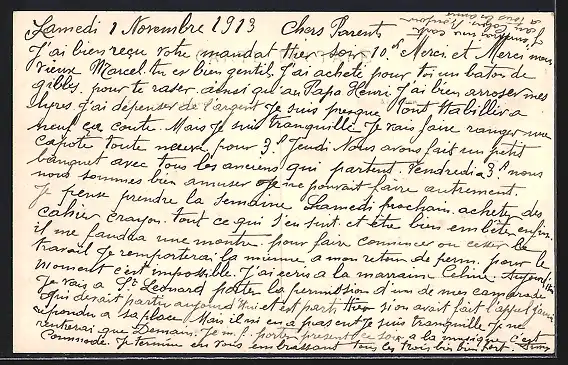 Samedi 1 Novembre 1913 Chers Parents
J'ai bien reçu votre mandat Hier soir 10f Merci et Merci mon
vieux Marcel. tu es bien gentil. J'ai acheté pour toi un baton de
pour te raser. ainsi qu'au Papa Henri J'ai bien arroser mes
J'ai dépenser de l'argent Je suis presque tout Habiller a
neuf ça coute. Mais Je suis tranquille Je vais faire ranger une
capote toute neuve pour 3f Jeudi Nous avons fait un petit
banquet avec tous les anciens qui partent Vendredi a 3h nous
nous sommes bien amuser ne pouvait faire autrement.
Je pense prendre la semaine Samedi prochain. acheter des
cahier crayon. tout ce qui s'en suit. et être bien embêter enfin.
il me faudra une montre pour faire commincer ou cesser le
travail Je remporterai la mienne a mon retour de perm. pour le
moment c'est impossible. J'ai ecris a la marraine Celine. Aujourd'hui
Je vais a St Leonard porter la permission d'un de mes camarade
qui devait partir aujourd'Hui et est parti Hier si on avait fait l'appel
repondu a sa place. Mais il n'i en a pas eut Je suis tranquille Je ne
rentrerai que Demain. Je porter present ce soir a la musique c'est
commode. Je termine en vous embrassant tous les trois bien fort.